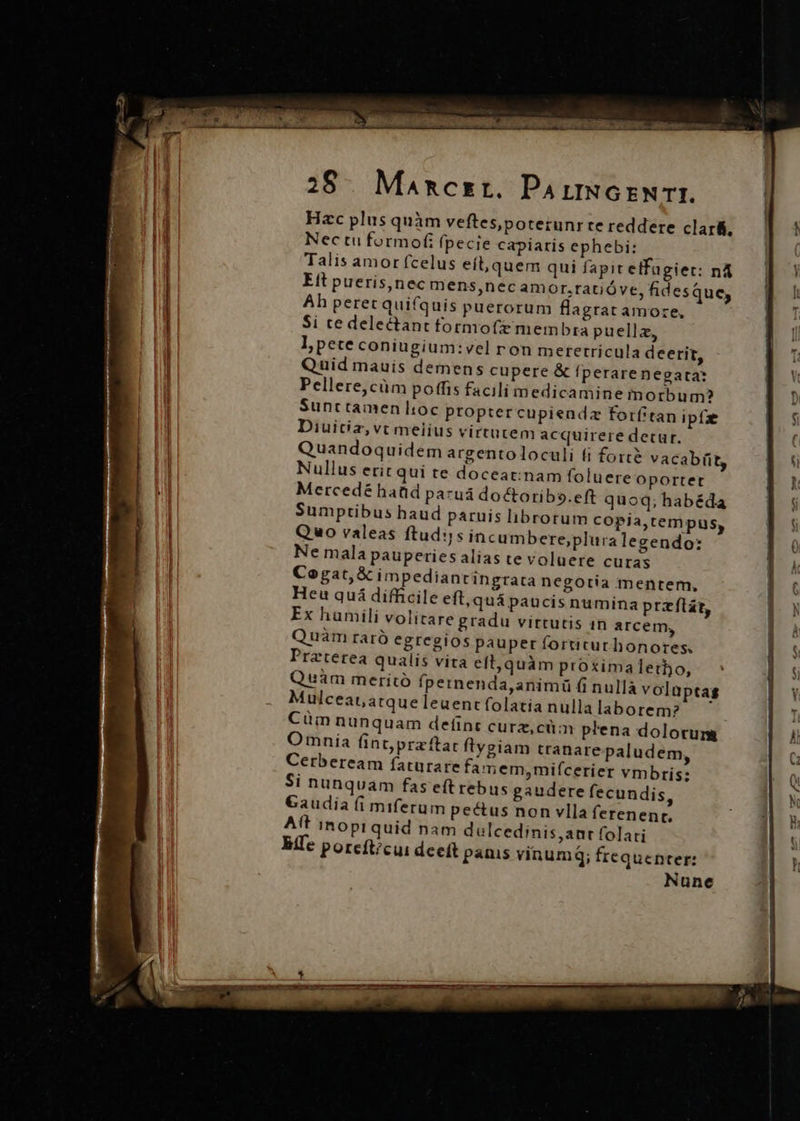 28 MARCEL. PALINGENTI.
Hæc plus quàm veſtes, poterunt te reddere clarũ.
Nec tu formoſi ſpecie capiaris ephebi:
Talis amor ſcelus eſt, quem qui ſapit effugiet: nã
Eſt pueris, nec mens, nec amor, ratióve, fidesque,
Ah peret quiſquis puerorum flagrat amore.
Si te delectant formoſæ membra puellæ,
I, pete coniugium: vel ſi non meretricula deerit,
Quid mauis demens cupere & ſperare negata:
Pellere, cùm poſſis facili medicamine morbum?
Sunt tamen hoc propter cupiendæ forſitan ipſæ
Diuitiæ, vt melius virtutem acquirere detur.
Quandoquidem argento loculi ſi fortè vacabũt,
Nullus erit qui te doceat: nam ſoluere oportet
Mercedẽ haũd paruã doctorib9. eſt quoq; habẽda
Sumptibus haud paruis librorum copia, tempus,
Quo valeas ſtudijs incumbere, plura legendo:
Ne mala pauperies alias te voluere curas
Cogat, & impediant ingrata negotia mentem.
Heu quã difficile eſt, quã paucis numina præſtãt,
Ex humili volitare gradu virtutis in arcem,
Quàm rarò egregios pauper ſortitur honores.
Præterea qualis vita eſt, quàm proxima letho,
Quàm meritò ſpernenda, animũ ſi nulla voluptas
Mulceat, atque leuent ſolatia nulla laborem?
Cùm nunquam deſint curæ, cùm plena dolorum
Omnia ſint, præſtat ſtygiam tranare paludem,
Cerbeream ſaturare famem, miſcerier vmbris:
Si nunquam fas eſt rebus gaudere ſecundis,
Gaudia ſi miſerum pectus non vlla ſerenent.
Aſt inopi quid nam dulcedinis, aut ſolati
Eſſe poteſt? cui deeſt panis vinumq́; frequenter:
Nunc